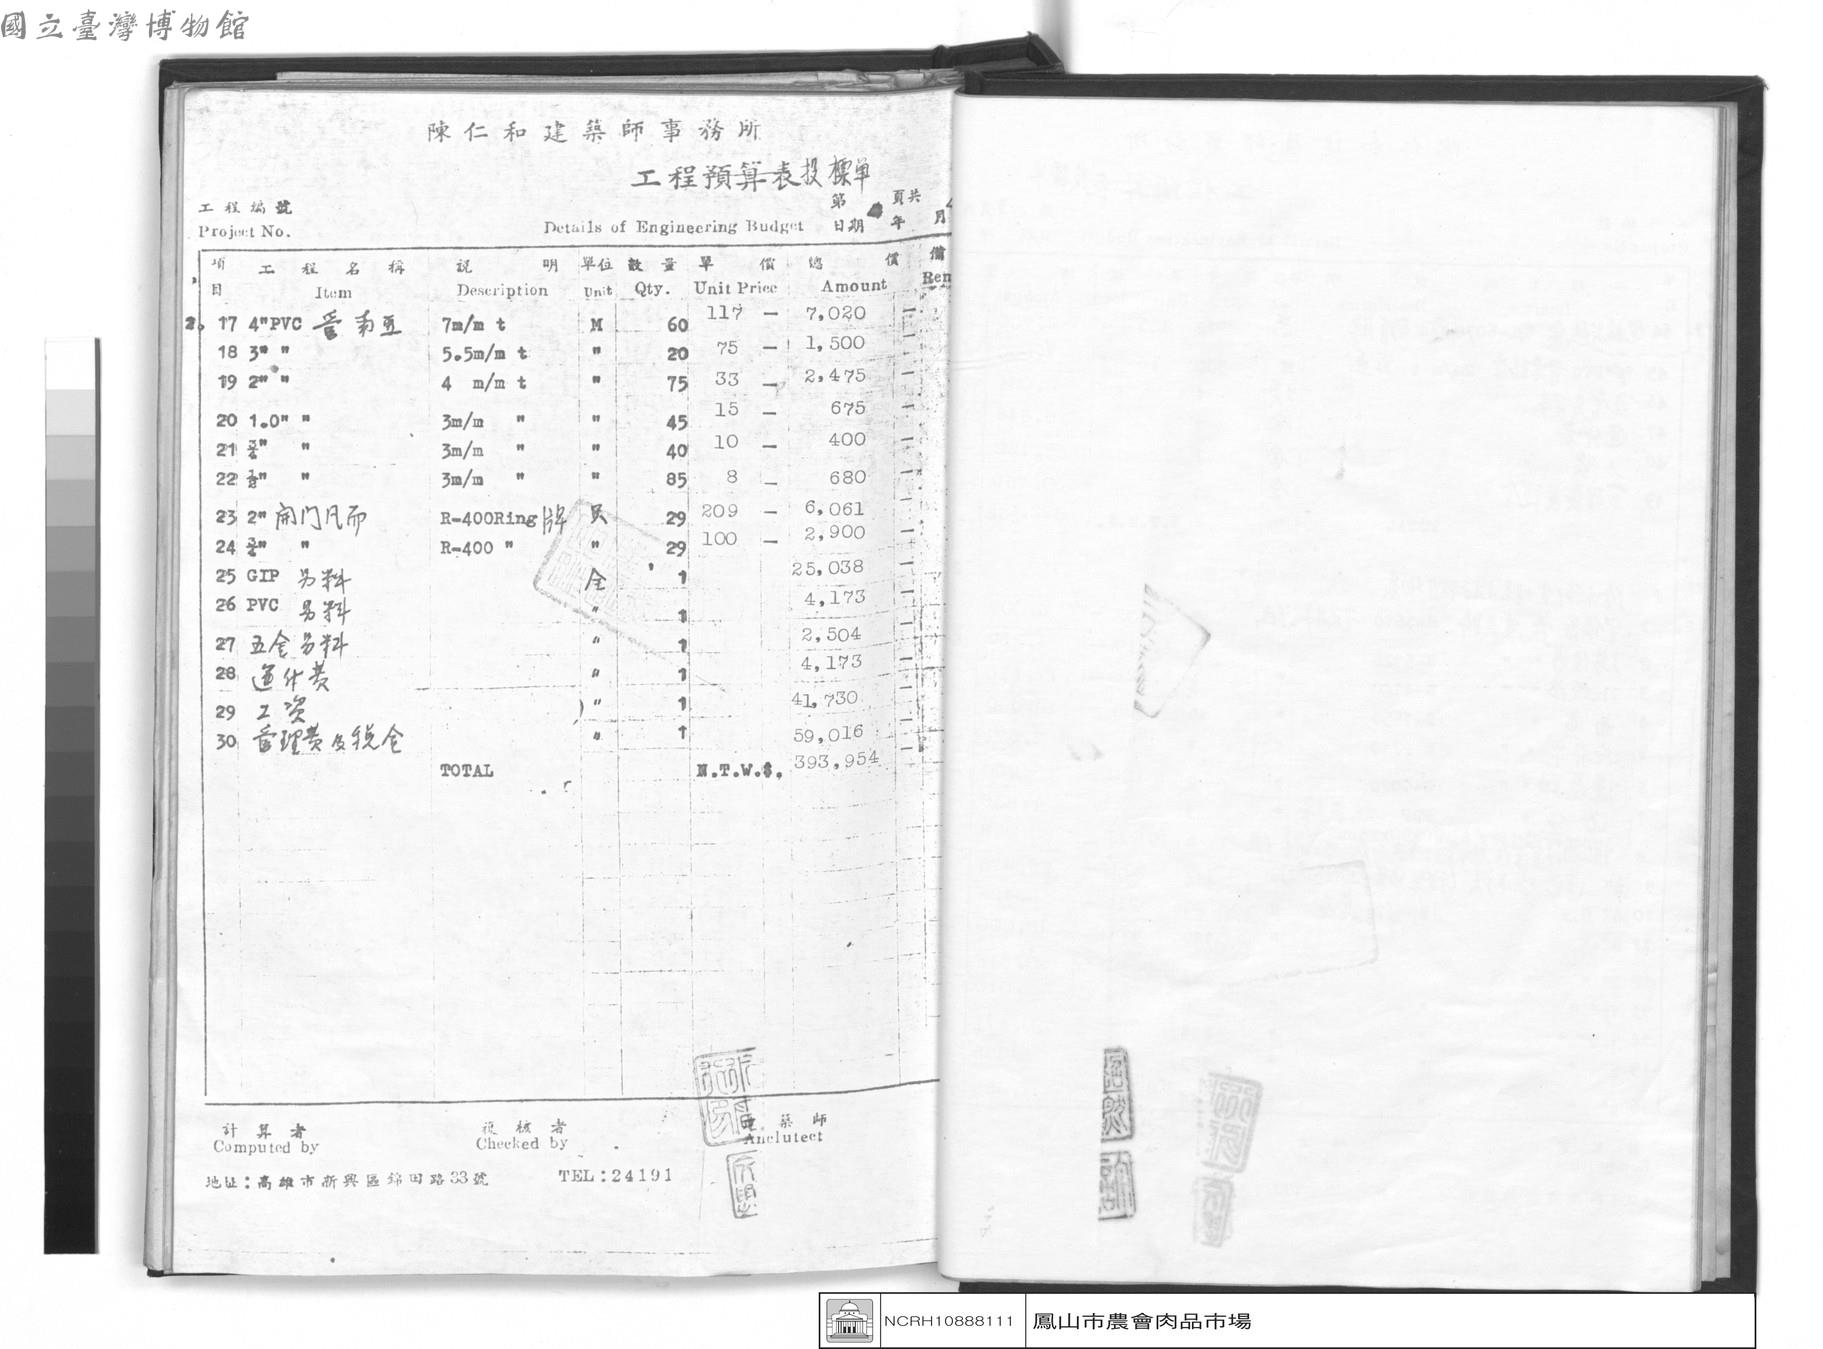 國立臺灣博物館
陳仁和建築師事務所
工程預算表投標單
工程編號 第 頁共
Project No. Details of Engineering Budget 日期 年 月
項目 工程名稱 説明 單位 數量 單價 總價 備
Item Description Unit Qty. Unit Price Amount Rem
2. 17 4"PVC 管 南亞 7m/m t M 60 117 — 7,020 —
18 3" " 5.5m/m t " 20 75 — 1,500 —
19 2" " 4 m/m t " 75 33 — 2,475 —
20 1.0" " 3m/m " " 45 15 — 675 —
21 ¾" " 3m/m " " 40 10 — 400 —
22 ½" " 3m/m " " 85 8 — 680 —
23 2" 開门凡而 R-400Ring牌 只 29 209 — 6,061 —
24 ¾" " R-400 " " 29 100 — 2,900 —
25 GIP 另料 全 1 25,038 —
26 PVC 另料 " 1 4,173 —
27 五金另料 " 1 2,504 —
28 運什費 " 1 4,173 —
29 工資 " 1 41,730 —
30 管理費及税金 " 1 59,016 —
TOTAL N.T.W.$. 393,954 —
計算者 複核者 建築師
Computed by Checked by Anclutect
地址:高雄市新興區錦田路33號 TEL:24191
NCRH10888111 鳳山市農會肉品市場